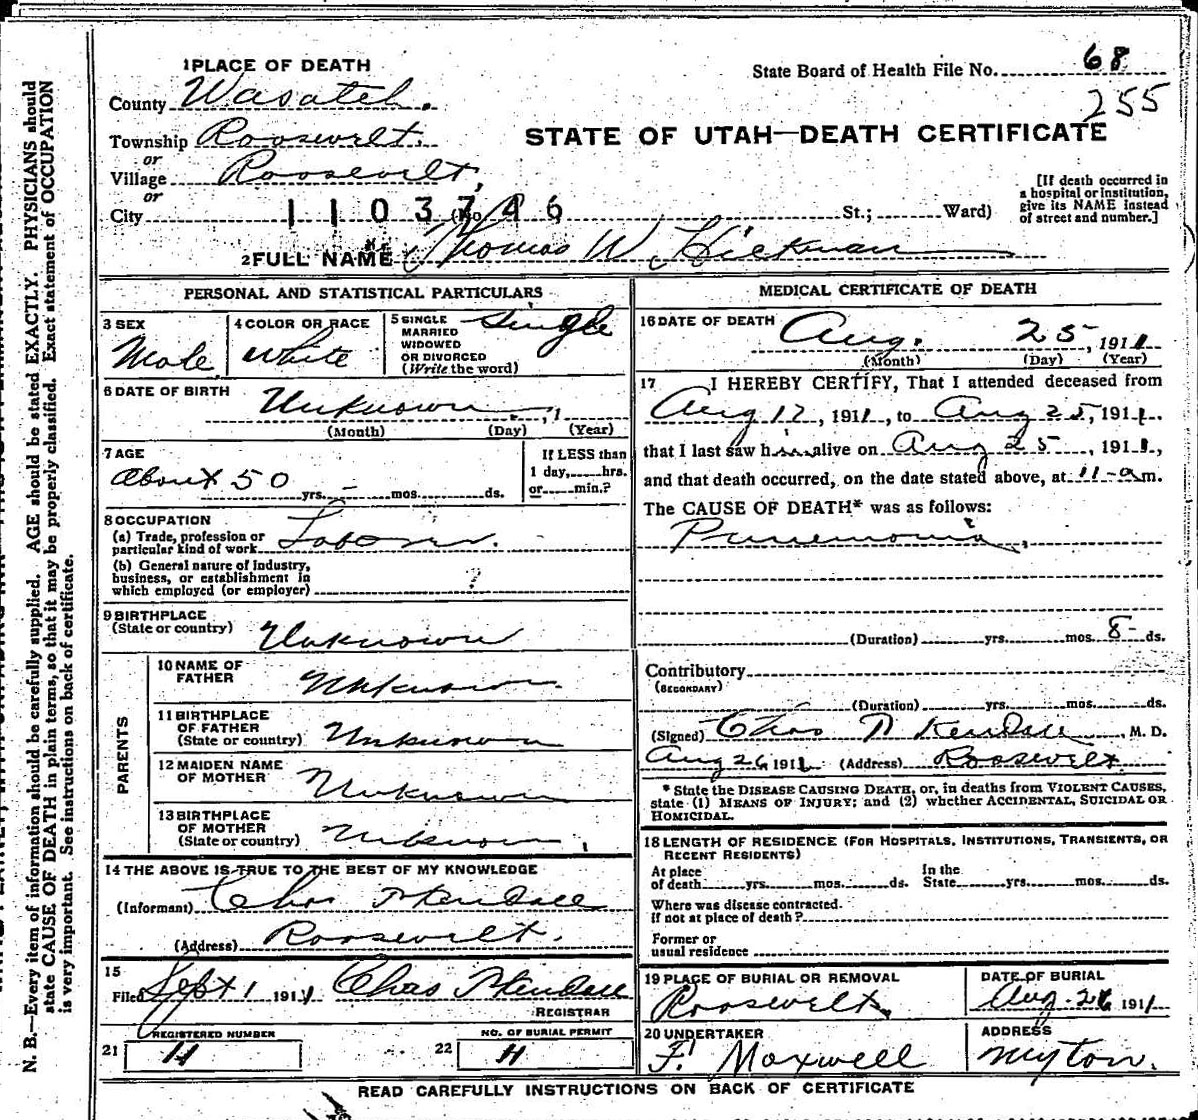 1 PLACE OF DEATH
State Board of Health File No. 68
County Wasatch.
255
Township Roosevelt.
STATE OF UTAH—DEATH CERTIFICATE
or
Village Roosevelt,
or
[If death occurred in
a hospital or institution,
give its NAME instead
of street and number.]
City 1103746 (No. St.; Ward)
2 FULL NAME Thomas W Hickman
PERSONAL AND STATISTICAL PARTICULARS
3 SEX
Male
4 COLOR OR RACE
White
5 SINGLE
MARRIED
WIDOWED
OR DIVORCED
(Write the word)
Single
6 DATE OF BIRTH
Unknown, 1
(Month) (Day) (Year)
7 AGE
About 50 yrs. - mos. ds.
If LESS than
1 day, hrs.
or min.?
8 OCCUPATION
(a) Trade, profession or
particular kind of work Laborer.
(b) General nature of industry,
business, or establishment in
which employed (or employer) ?
9 BIRTHPLACE
(State or country) Unknown
PARENTS
10 NAME OF
FATHER Unknown.
11 BIRTHPLACE
OF FATHER
(State or country) Unknown
12 MAIDEN NAME
OF MOTHER Unknown
13 BIRTHPLACE
OF MOTHER
(State or country) Unknown,
14 THE ABOVE IS TRUE TO THE BEST OF MY KNOWLEDGE
(Informant) Chas N Kendall
(Address) Roosevelt.
15
Filed Sept 1 1911 Chas N Kendall
REGISTRAR
REGISTERED NUMBER
21
NO. OF BURIAL PERMIT
22
MEDICAL CERTIFICATE OF DEATH
16 DATE OF DEATH Aug. 25, 1911
(Month) (Day) (Year)
17 I HEREBY CERTIFY, That I attended deceased from
Aug 17, 1911, to Aug 25, 1911.
that I last saw him alive on Aug 25, 1911,
and that death occurred, on the date stated above, at 11-am.
The CAUSE OF DEATH* was as follows:
Pnuemonia,
(Duration) yrs. mos. 8- ds.
Contributory
(SECONDARY)
(Duration) yrs. mos. ds.
(Signed) Chas N Kendall, M. D.
Aug 26 1911 (Address) Roosevelt
* State the DISEASE CAUSING DEATH, or, in deaths from VIOLENT CAUSES,
state (1) MEANS OF INJURY; and (2) whether ACCIDENTAL, SUICIDAL OR
HOMICIDAL.
18 LENGTH OF RESIDENCE (FOR HOSPITALS, INSTITUTIONS, TRANSIENTS, OR
RECENT RESIDENTS)
At place
of death yrs. mos. ds.
In the
State yrs. mos. ds.
Where was disease contracted.
If not at place of death?
Former or
usual residence
19 PLACE OF BURIAL OR REMOVAL
Roosevelt.
DATE OF BURIAL
Aug. 26 1911
20 UNDERTAKER
F. Maxwell
ADDRESS
Myton.
READ CAREFULLY INSTRUCTIONS ON BACK OF CERTIFICATE
N. B.—Every item of information should be carefully supplied. AGE should be stated EXACTLY. PHYSICIANS should
state CAUSE OF DEATH in plain terms, so that it may be properly classified. Exact statement of OCCUPATION
is very important. See instructions on back of certificate.